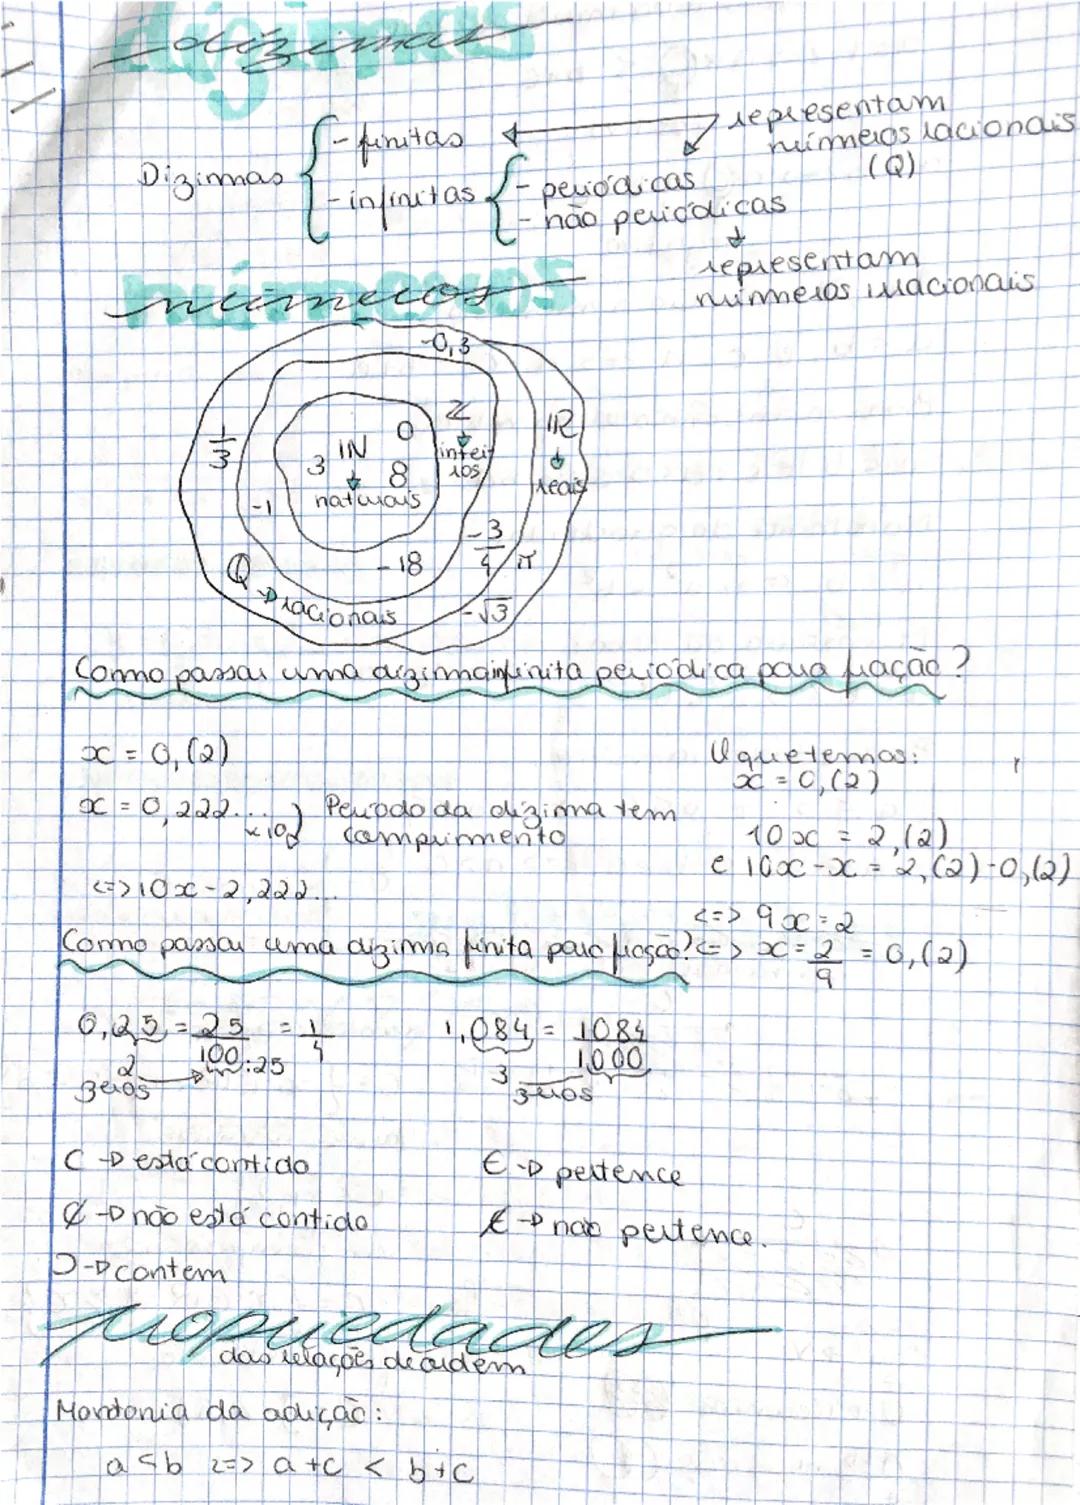 dízimas
Dizimas
- finitas
- infinitas
- periódicas
- não periódicas
representam
números racionais
(Q)
representam
números irracionais
números
-0,3
1/3
IN
naturais
3
0
8
Z
intei
ros
IR
reais
-1
-18
-3/4
π
-√3
Q
racionais
Como passar uma dizima infinita periódica para fração?
x = 0,(2)
x = 0,222...
x10
Período da dízima tem
comprimento
<=> 10x - 2,222...
temos:
x = 0,(2)
10x = 2,(2)
e 10x-x = 2,(2)-0,(2)
<=> 9x = 2
<=> x = 2/9 = 0,(2)
Como passar uma dizima finita para fração?
0,25 = 25/100 = 1/4
:25
2
zeros
1,084 = 1084/1000
3
zeros
⊂ → está contido
⊄ → não está contido
⊃ → contem
∈ → pertence
∉ → nao pertence.
propriedades
das relações de ordem
Montonia da adição:
a < b <=> a+c < b+c